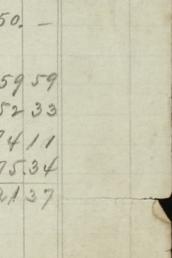 50. —
59 59
52 33
74 11
75.34
21 37